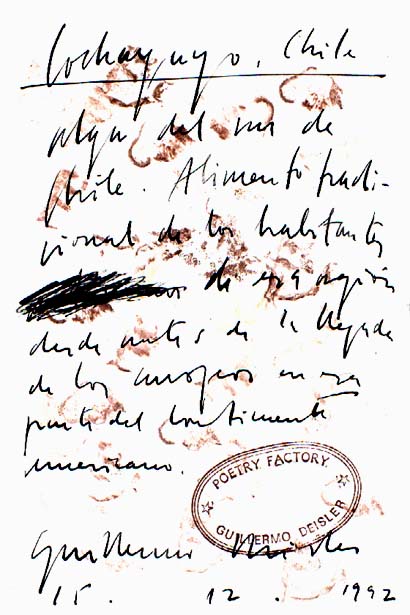 Cochayuyo, Chile
alga del mar de
Chile. Alimento tradi-
cional de los habitantes
de esa región
desde antes de la llegada
de los europeos en esa
parte del continente
americano.
POETRY FACTORY.
GUILLERMO DEISLER
Guillermo Deisler
15. 12. 1992